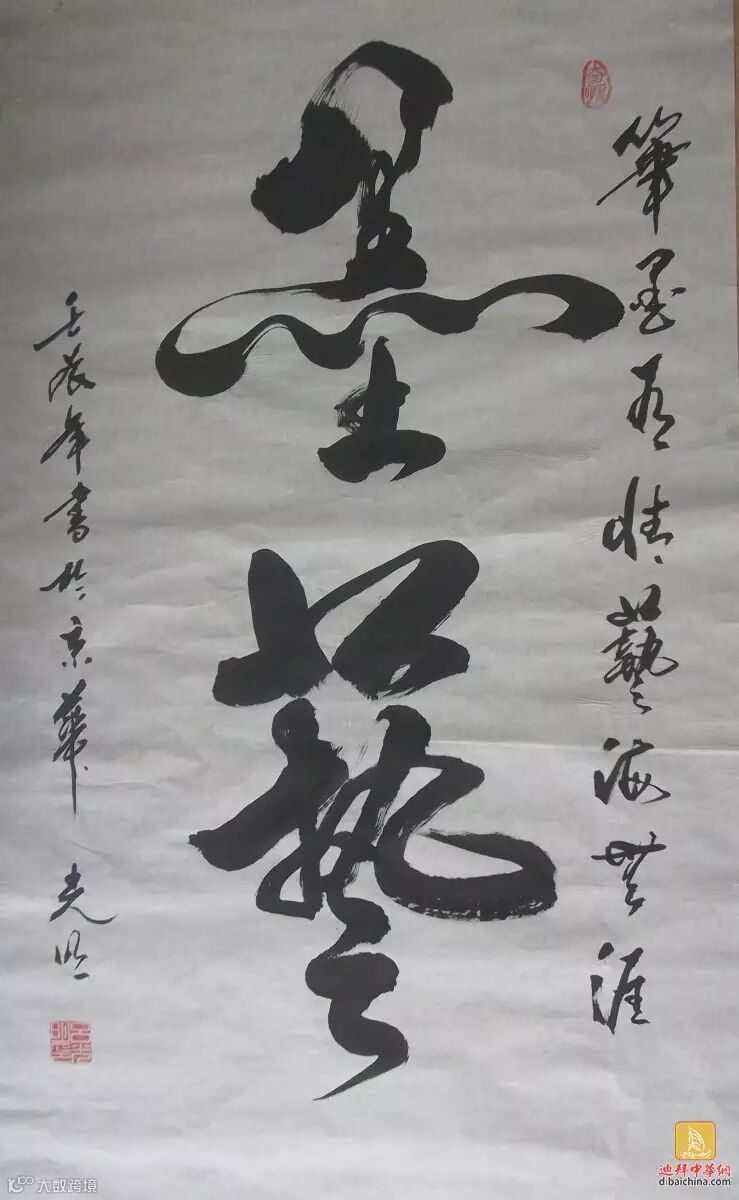 筆墨有情藝海無涯
墨藝
壬辰年書於京華 光明
迪拜中華網
dibaichina.com
大数跨境